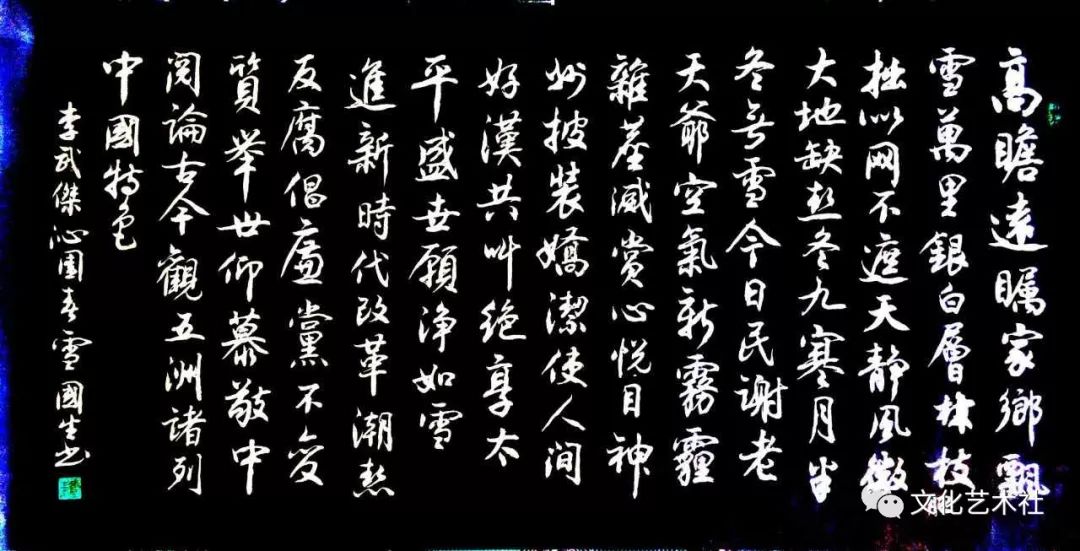 高瞻遠矚家鄉飄
雪萬里銀白層林枝
挂似网不遮天靜風微
大地缺熱冬九寒月半
冬無雪今日民謝老
天爺空氣新霧霾
雜塵滅賞心悅目神
州披裝嬌潔使人间
好漢共叫绝享太
平盛世願净如雪
進新時代改革潮熱
反腐倡廉黨不变
質举世仰慕敬中
阅論古今觀五洲諸列
中國特色
李武傑沁園春雪國生书
文化艺术社